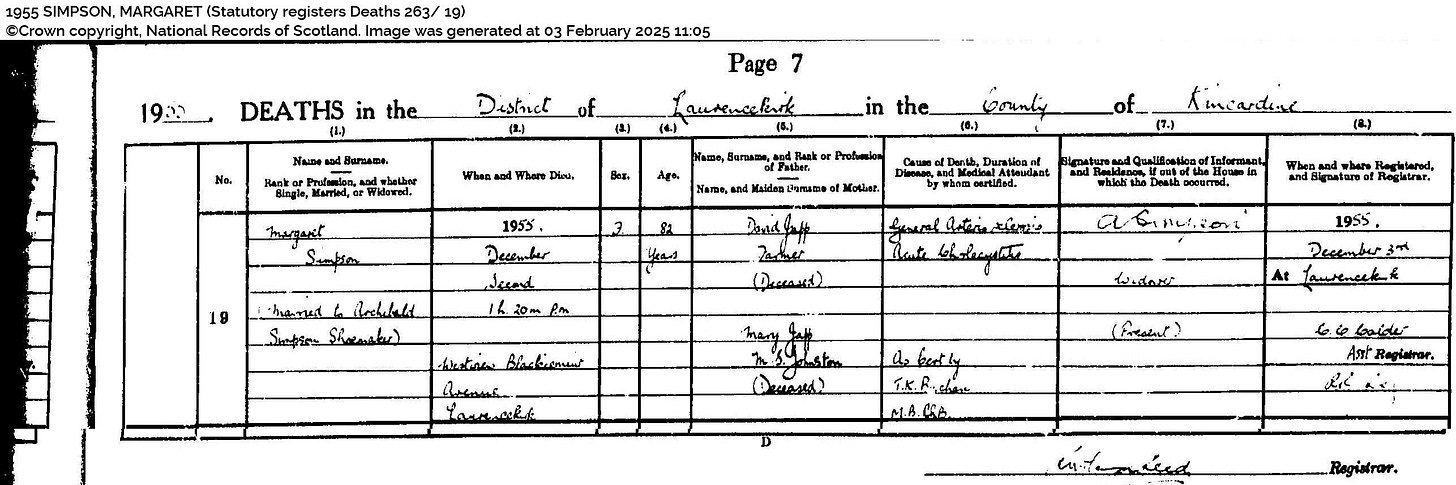 1955 SIMPSON, MARGARET (Statutory registers Deaths 263/ 19)
©Crown copyright, National Records of Scotland. Image was generated at 03 February 2025 11:05
Page 7
1955. DEATHS in the District of Laurencekirk in the County of Kincardine
(1.) (2.) (3.) (4.) (5.) (6.) (7.) (8.)
No.
Name and Surname.
Rank or Profession, and whether
Single, Married, or Widowed.
When and Where Died.
Sex.
Age.
Name, Surname, and Rank or Profession
of Father.
Name, and Maiden Surname of Mother.
Cause of Death, Duration of
Disease, and Medical Attendant
by whom certified.
Signature and Qualification of Informant,
and Residence, if out of the House in
which the Death occurred.
When and where Registered,
and Signature of Registrar.
19
Margaret
Simpson
(Married to Archibald
Simpson Shoemaker)
1955.
December
Second
1h. 20m P.m
Westview
Avenue
Laurencekirk
F
82
Years
David Japp
Farmer
(Deceased)
Mary Japp
M. S. Johnston
(Deceased)
General Arterio sclerosis
Acute Cholecystitis
As Cert by
T.K.
M.B. ChB.
A Simpson
Widower
(Present)
1955.
December 3rd
At Laurencekirk
Calder
Asst Registrar.
D
Registrar.